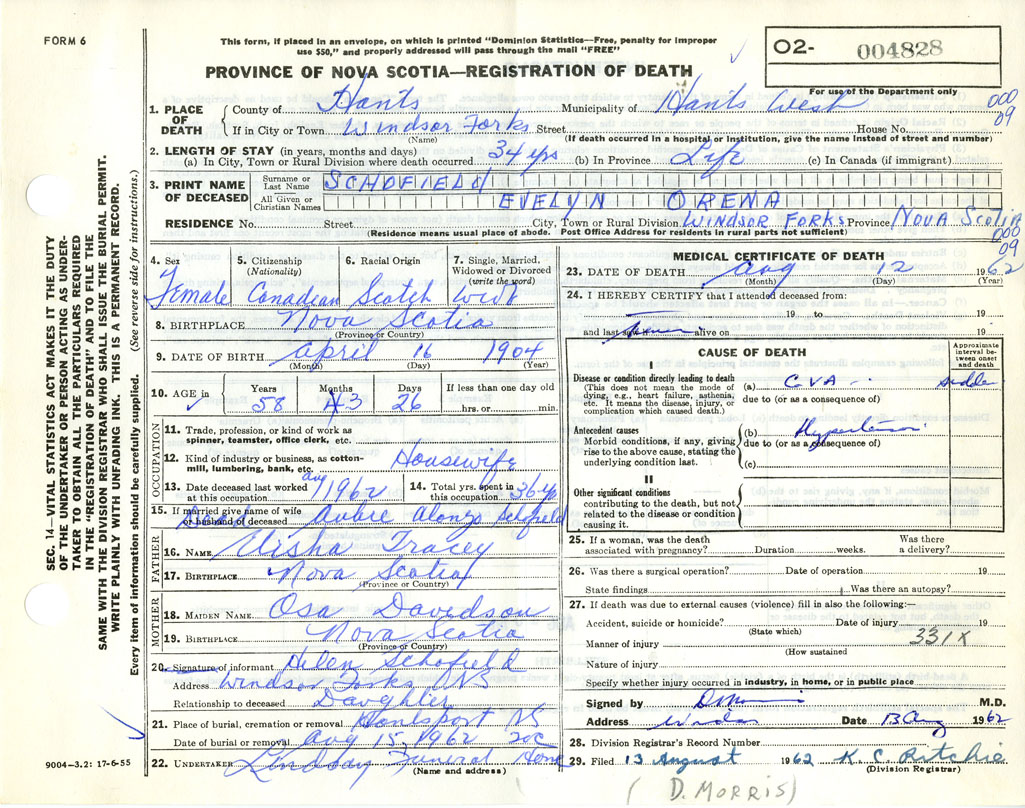 FORM 6
This form, if placed in an envelope, on which is printed "Dominion Statistics—Free, penalty for improper
use $50," and properly addressed will pass through the mail "FREE"
O2- 004828
PROVINCE OF NOVA SCOTIA—REGISTRATION OF DEATH
For use of the Department only
SEC. 14—VITAL STATISTICS ACT MAKES IT THE DUTY
OF THE UNDERTAKER OR PERSON ACTING AS UNDER-
TAKER TO OBTAIN ALL THE PARTICULARS REQUIRED
IN THE "REGISTRATION OF DEATH" AND TO FILE THE
SAME WITH THE DIVISION REGISTRAR WHO SHALL ISSUE THE BURIAL PERMIT.
WRITE PLAINLY WITH UNFADING INK. THIS IS A PERMANENT RECORD.
Every item of information should be carefully supplied. (See reverse side for instructions.)
1. PLACE OF DEATH
County of Hants Municipality of Hants West 000
09
If in City or Town Windsor Forks Street House No.
(Name) (If death occurred in a hospital or institution, give the name instead of street and number)
2. LENGTH OF STAY (in years, months and days)
(a) In City, Town or Rural Division where death occurred 34 yrs (b) In Province Life (c) In Canada (if immigrant)
3. PRINT NAME OF DECEASED
Surname or Last Name SCHOFIELD
All Given or Christian Names EVELYN ORENA
RESIDENCE No. Street City, Town or Rural Division WINDSOR FORKS Province NOVA SCOTIA
(Residence means usual place of abode. Post Office Address for residents in rural parts not sufficient)
000
09
4. Sex 5. Citizenship (Nationality) 6. Racial Origin 7. Single, Married, Widowed or Divorced (write the word)
Female Canadian Scotch Wid
8. BIRTHPLACE Nova Scotia
(Province or Country)
9. DATE OF BIRTH April 16 1904
(Month) (Day) (Year)
10. AGE in Years Months Days If less than one day old
58 3 26 hrs. or min.
OCCUPATION
11. Trade, profession, or kind of work as
spinner, teamster, office clerk, etc.
12. Kind of industry or business, as cotton-
mill, lumbering, bank, etc. Housewife
13. Date deceased last worked at this occupation Aug 1962 14. Total yrs. spent in this occupation 36 yrs
15. If married give name of wife
or husband of deceased Aubre Alonzo Schofield
FATHER
16. NAME Elisha Tracey
17. BIRTHPLACE Nova Scotia
(Province or Country)
MOTHER
18. MAIDEN NAME Osa Davidson
19. BIRTHPLACE Nova Scotia
(Province or Country)
20. Signature of informant Helen Schofield
Address Windsor Forks NS
Relationship to deceased Daughter
21. Place of burial, cremation or removal Hantsport NS
Date of burial or removal Aug 15, 1962
22. UNDERTAKER Lindsay Funeral Home
(Name and address)
9004—3.2: 17-6-55
MEDICAL CERTIFICATE OF DEATH
23. DATE OF DEATH Aug 12 1962
(Month) (Day) (Year)
24. I HEREBY CERTIFY that I attended deceased from:
19 to 19
and last saw alive on 19
CAUSE OF DEATH
Approximate interval between onset and death
I
Disease or condition directly leading to death
(This does not mean the mode of
dying, e.g., heart failure, asthenia,
etc. It means the disease, injury, or
complication which caused death.)
(a) CVA
due to (or as a consequence of)
Antecedent causes
Morbid conditions, if any, giving
rise to the above cause, stating the
underlying condition last.
(b) Hypertension
due to (or as a consequence of)
(c)
II
Other significant conditions
contributing to the death, but not
related to the disease or condition
causing it.
25. If a woman, was the death Was there
associated with pregnancy? Duration weeks. a delivery?
26. Was there a surgical operation? Date of operation 19
State findings Was there an autopsy?
27. If death was due to external causes (violence) fill in also the following:—
Accident, suicide or homicide? Date of injury 19
(State which)
Manner of injury 331X
(How sustained
Nature of injury
Specify whether injury occurred in industry, in home, or in public place
Signed by D Morris M.D.
Address Windsor Date 13 Aug 1962
28. Division Registrar's Record Number
29. Filed 13 August 1962 K. C. Ritchie
(Division Registrar)
( D. MORRIS)